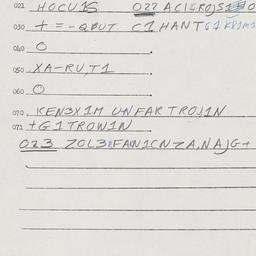 021 HOCU1S 022 ACIGROJS
030 + = - QBUT C1HANT
040 O
050 XA-RU,T1
060 O
070 KENJX1M UNFARTROJ1N
071 +G1TROW1N
023 ZOL3FAN1CNZA,NAJG+